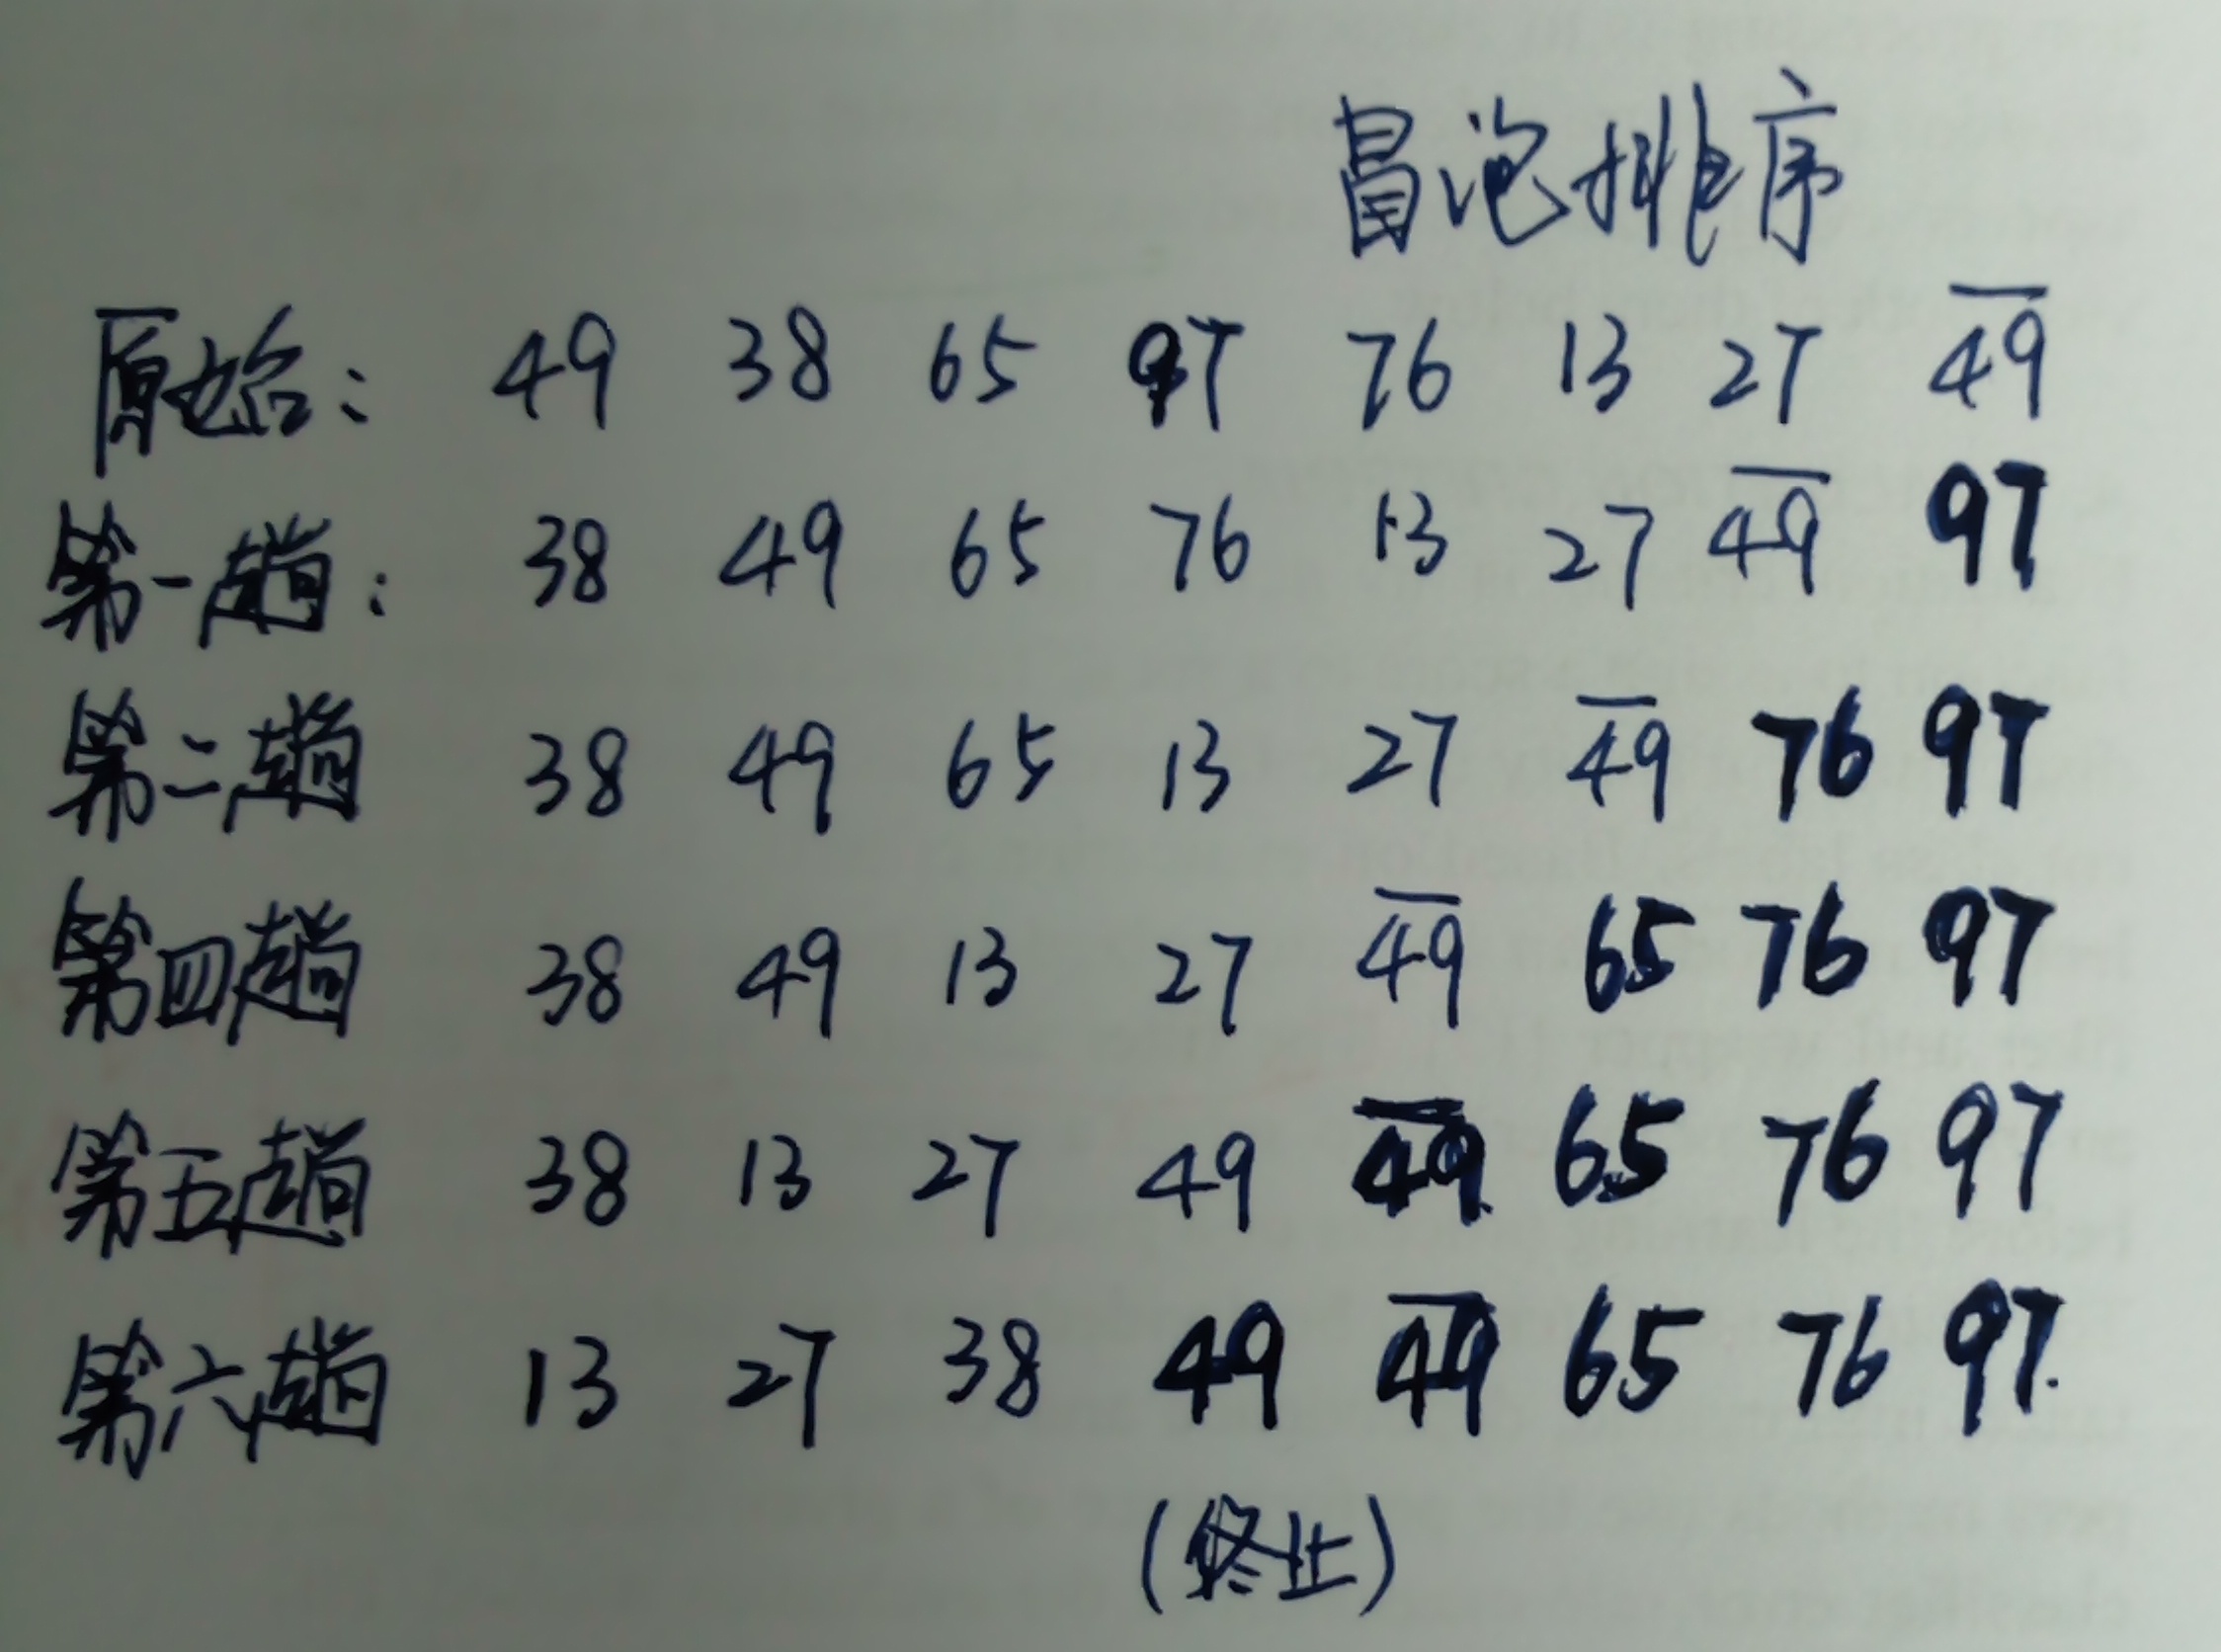 冒泡排序
原始: 49 38 65 97 76 13 27 4̅9̅
第一趟: 38 49 65 76 13 27 4̅9̅ 97
第二趟 38 49 65 13 27 4̅9̅ 76 97
第四趟 38 49 13 27 4̅9̅ 65 76 97
第五趟 38 13 27 49 4̅9̅ 65 76 97
第六趟 13 27 38 49 4̅9̅ 65 76 97.
(终止)